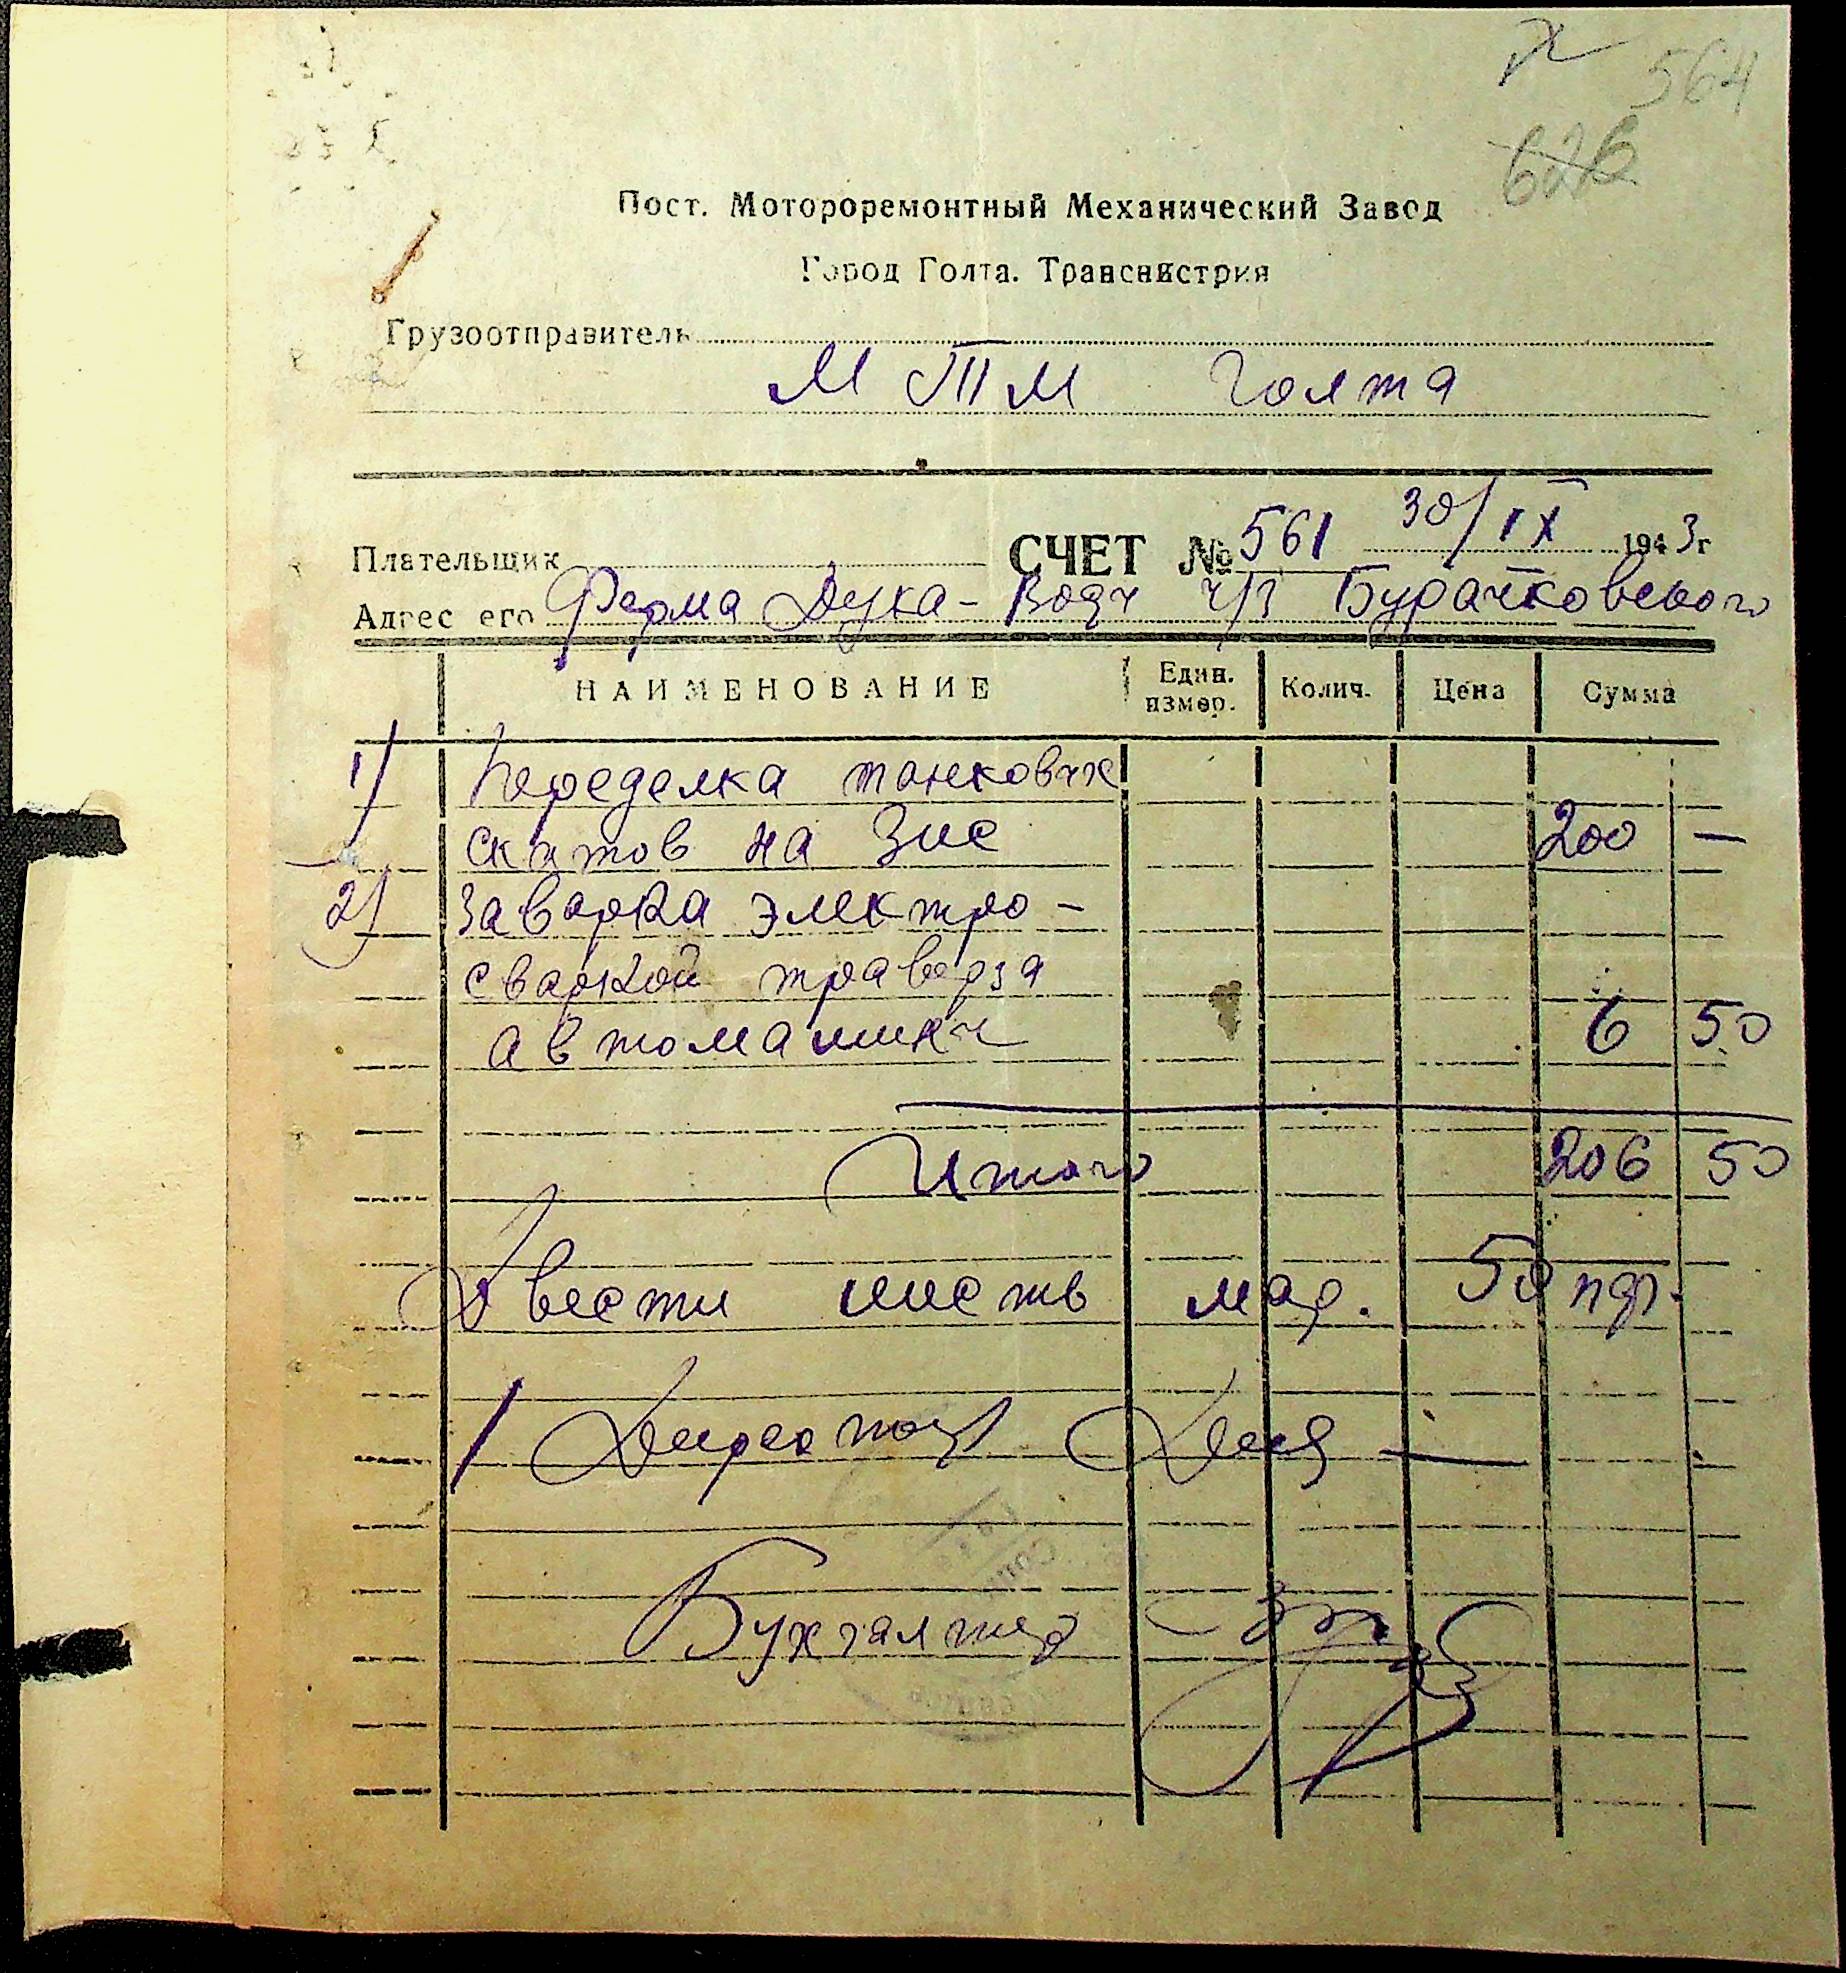 564
626
Пост. Мотороремонтный Механический Завод
Город Голта. Транснистрия
Грузоотправитель
М Т М Голта
СЧЕТ № 561 30/IX 1943 г
Плательщик
Адрес его Ферма Дука-Водэ ч/з Бурачковского
НАИМЕНОВАНИЕ Един. измер. Колич. Цена Сумма
1) Переделка танковых
скатов на Зис 200 —
2) Заварка электро-
сваркой траверза
автомашины 6 50
Итого 206 50
Двести шесть мар. 50 пф.
Директор
Бухгалтер